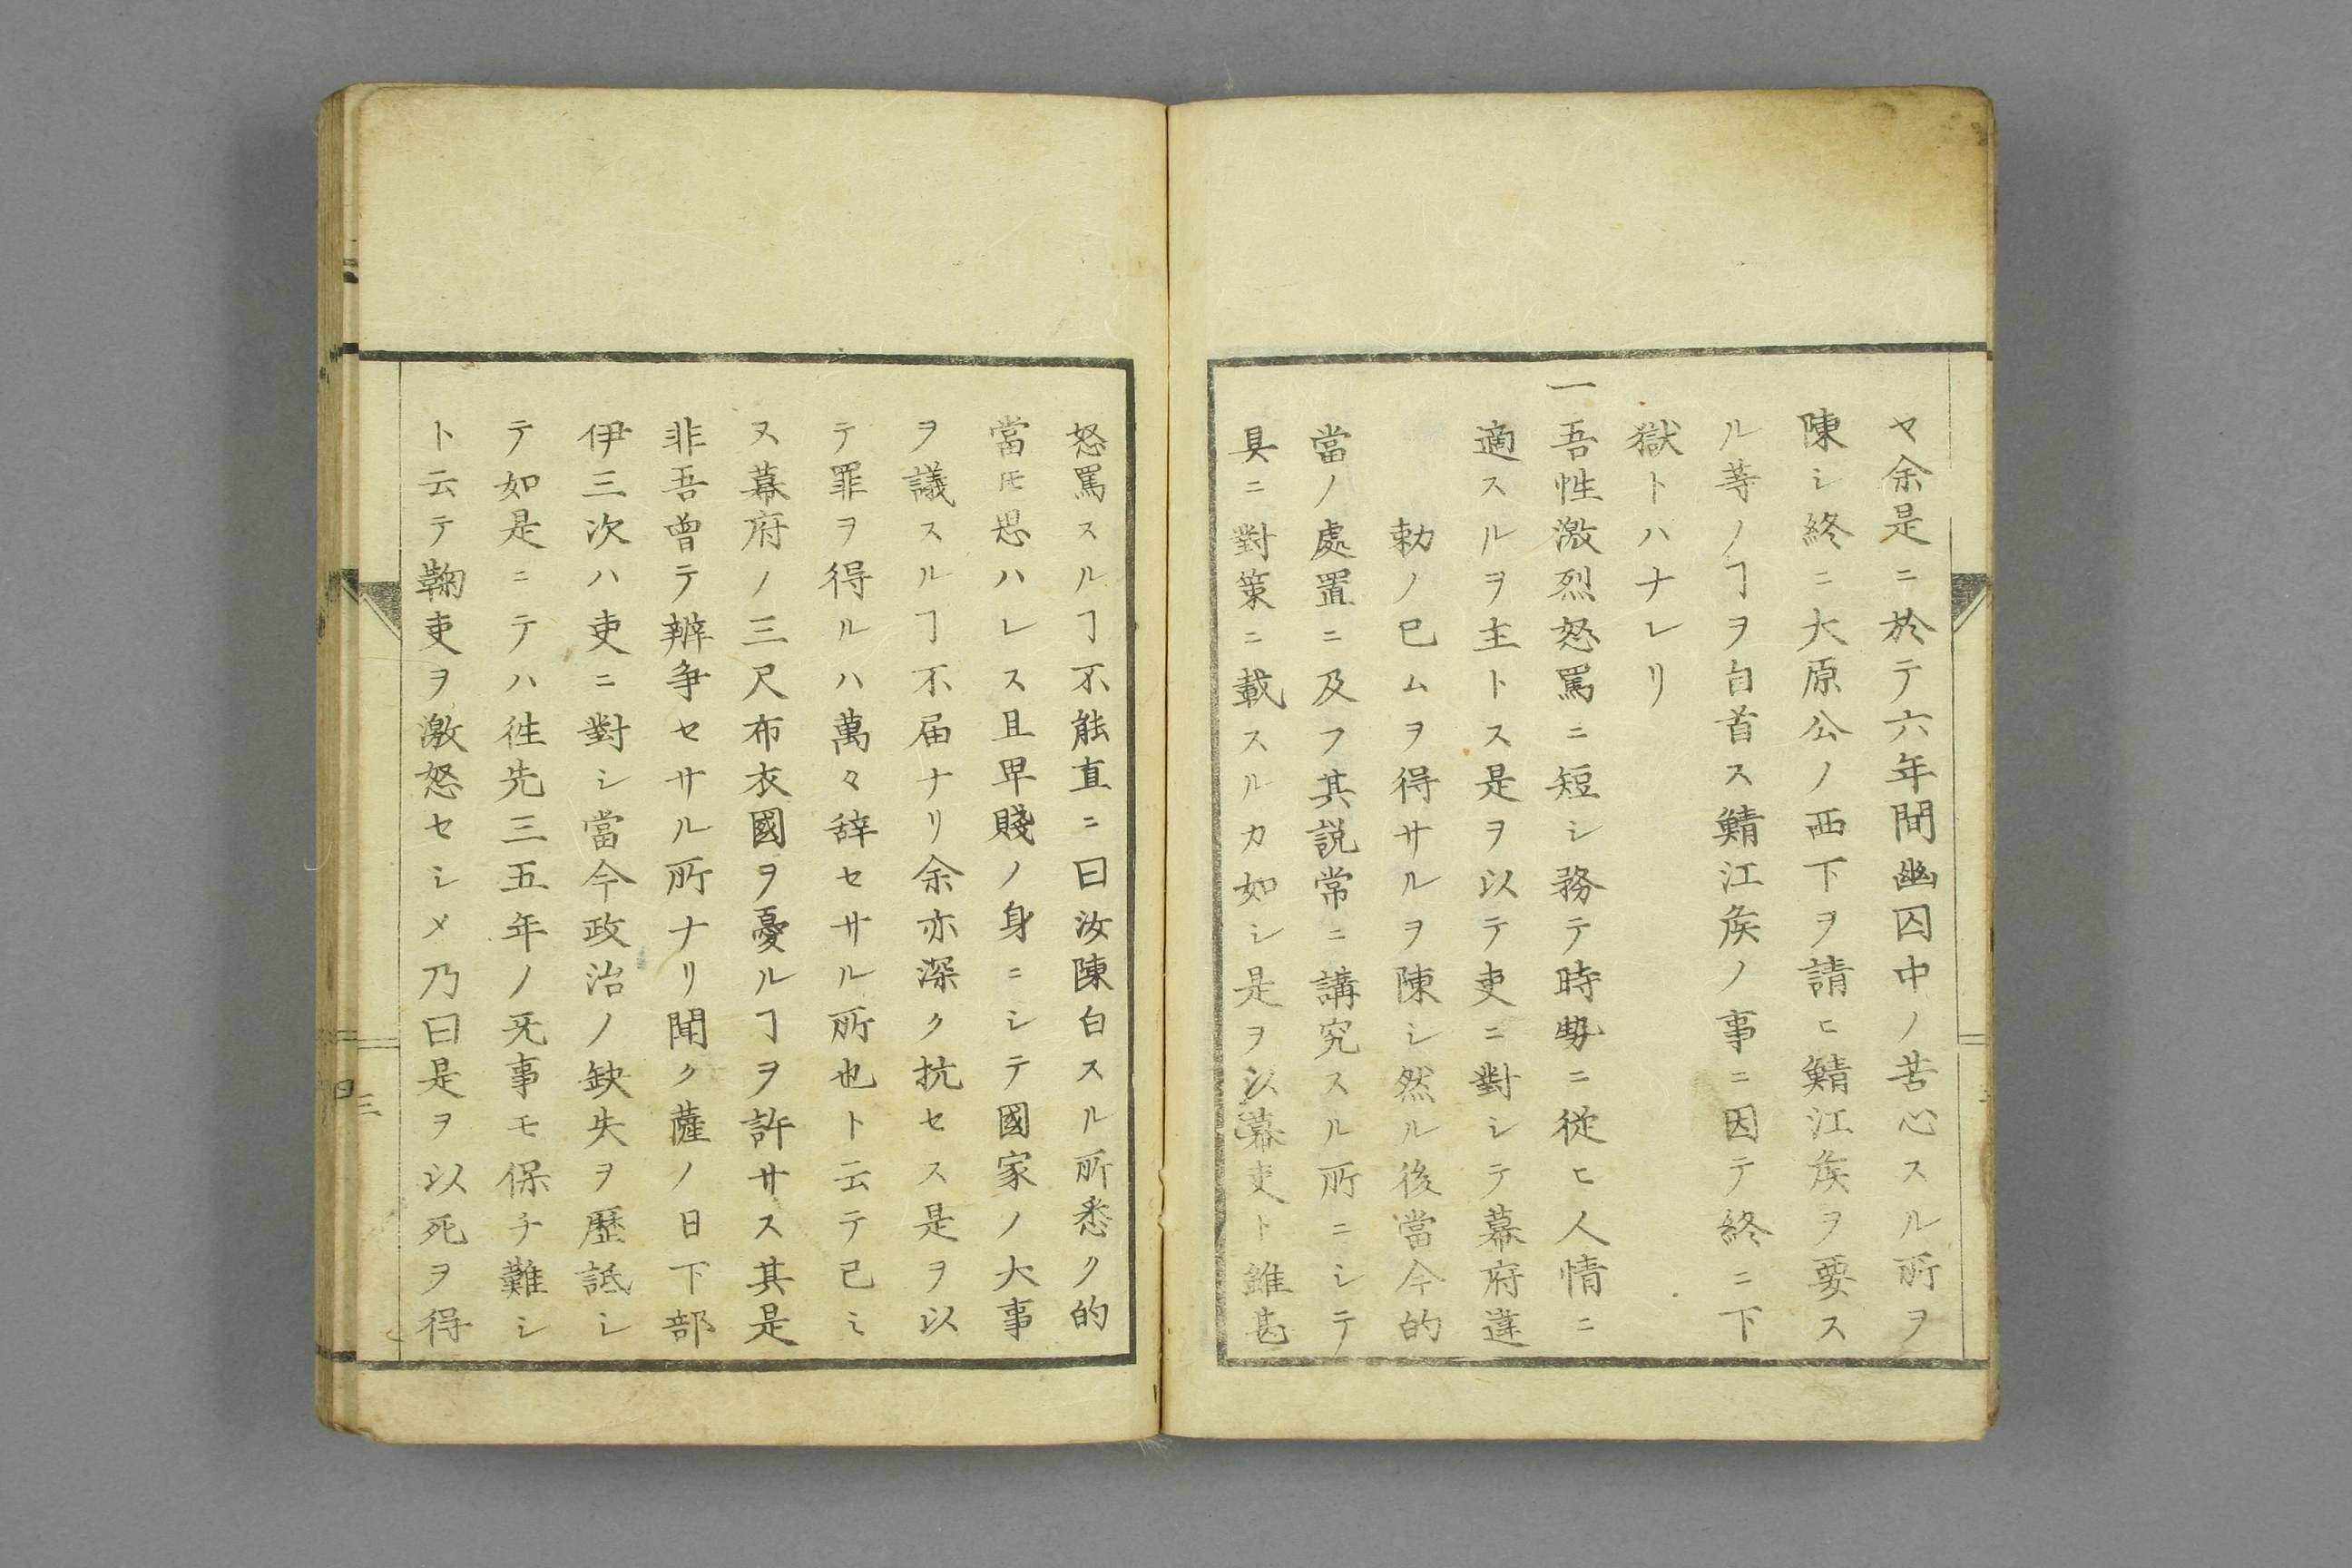 ヤ余是ニ於テ六年間幽囚中ノ苦心スル所ヲ
陳シ終ニ大原公ノ西下ヲ請ヒ鯖江矦ヲ要ス
ル䓁ノヿヲ自首ス鯖江矦ノ事ニ因テ終ニ下
獄トハナレリ
一吾性激烈怒罵ニ短シ務テ時勢ニ従ヒ人情ニ
適スルヲ主トス是ヲ以テ吏ニ對シテ幕府違
勅ノ已ムヲ得サルヲ陳シ然ル後當今的
當ノ處置ニ及フ其説常ニ講究スル所ニシテ
具ニ對策ニ載スルカ如シ是ヲ以幕吏ト雖甚
怒罵スルヿ不能直ニ曰汝陳白スル所悉ク的
當𪜈思ハレス且卑賤ノ身ニシテ國家ノ大事
ヲ議スルヿ不届ナリ余亦深ク抗セス是ヲ以
テ罪ヲ得ルハ萬々辞セサル所也ト云テ已ミ
ヌ幕府ノ三尺布衣國ヲ憂ルヿヲ許サス其是
非吾曽テ辨争セサル所ナリ聞ク薩ノ日下部
伊三次ハ吏ニ對シ當今政治ノ缺失ヲ歴詆シ
テ如是ニテハ徃先三五年ノ无事モ保チ難シ
ト云テ鞠吏ヲ激怒セシメ乃曰是ヲ以死ヲ得
三